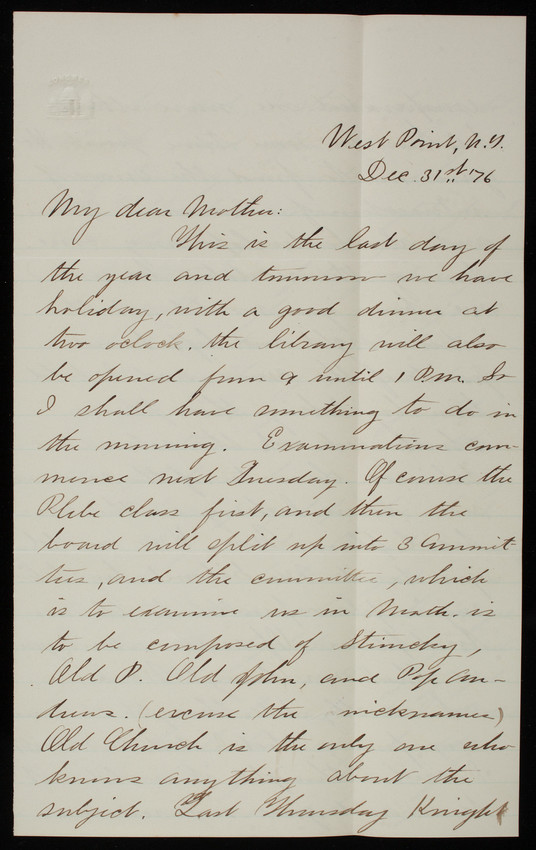 West Point, N.Y.
Dec. 31st '76
My dear Mother:
This is the last day of
the year and tomorrow we have
holiday, with a good dinner at
two oclock. the library will also
be opened from 9 until 1 P.M. So
I shall have something to do in
the morning. Examinations com-
mence next Tuesday. Of course the
Plebe class first, and then the
board will split up into 3 committ-
tees, and the committee, which
is to examine us in Math. is
to be composed of
Old P. Old John, and Pop An-
drews. (excuse the nicknames)
Old Church is the only one who
knows anything about the
subject. Last Thursday Knight